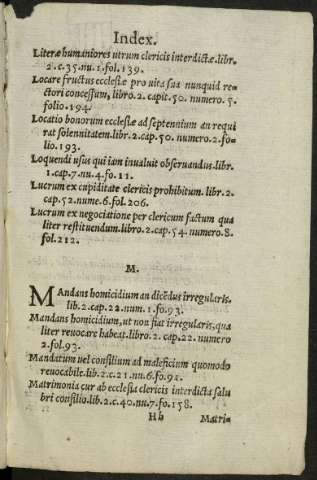 Index.
Literæ humaniores utrum clericis interdictæ.libr.
2.c.35.nu.1.fol.139.
Locare fructus ecclesiæ pro uita sua nunquid re-
ctori concessum, libro.2.capit.50.numero.5.
folio.194.
Locatio bonorum ecclesiæ ad septennium an requi
rat solennitatem.libr.2.cap.50.numero.2.fo-
lio.193.
Loquendi usus qui iam inualuit obseruandus.libr.
1.cap.7.nu.4.fo.11.
Lucrum ex cupiditate clericis prohibitum.libr.2.
cap.52.nume.6.fol.206.
Lucrum ex negociatione per clericum factum qua
liter restituendum.libro.2.cap.54.numero.8.
fol.212.
M.
MAndans homicidium an dicēdus irregularis.
lib.2.cap.22.num.1.fo.93.
Mandans homicidium, ut non fiat irregularis, qua
liter reuocare habeat.libro.2.cap.22.numero
2.fol.93.
Mandatum uel consilium ad maleficium quomodo
reuocabile.lib.2.c.21.nu.6.fo.92.
Matrimonia cur ab ecclesia clericis interdicta salu
bri consilio.lib.2.c.40.nu.7.fo.158.
Hh Matri=